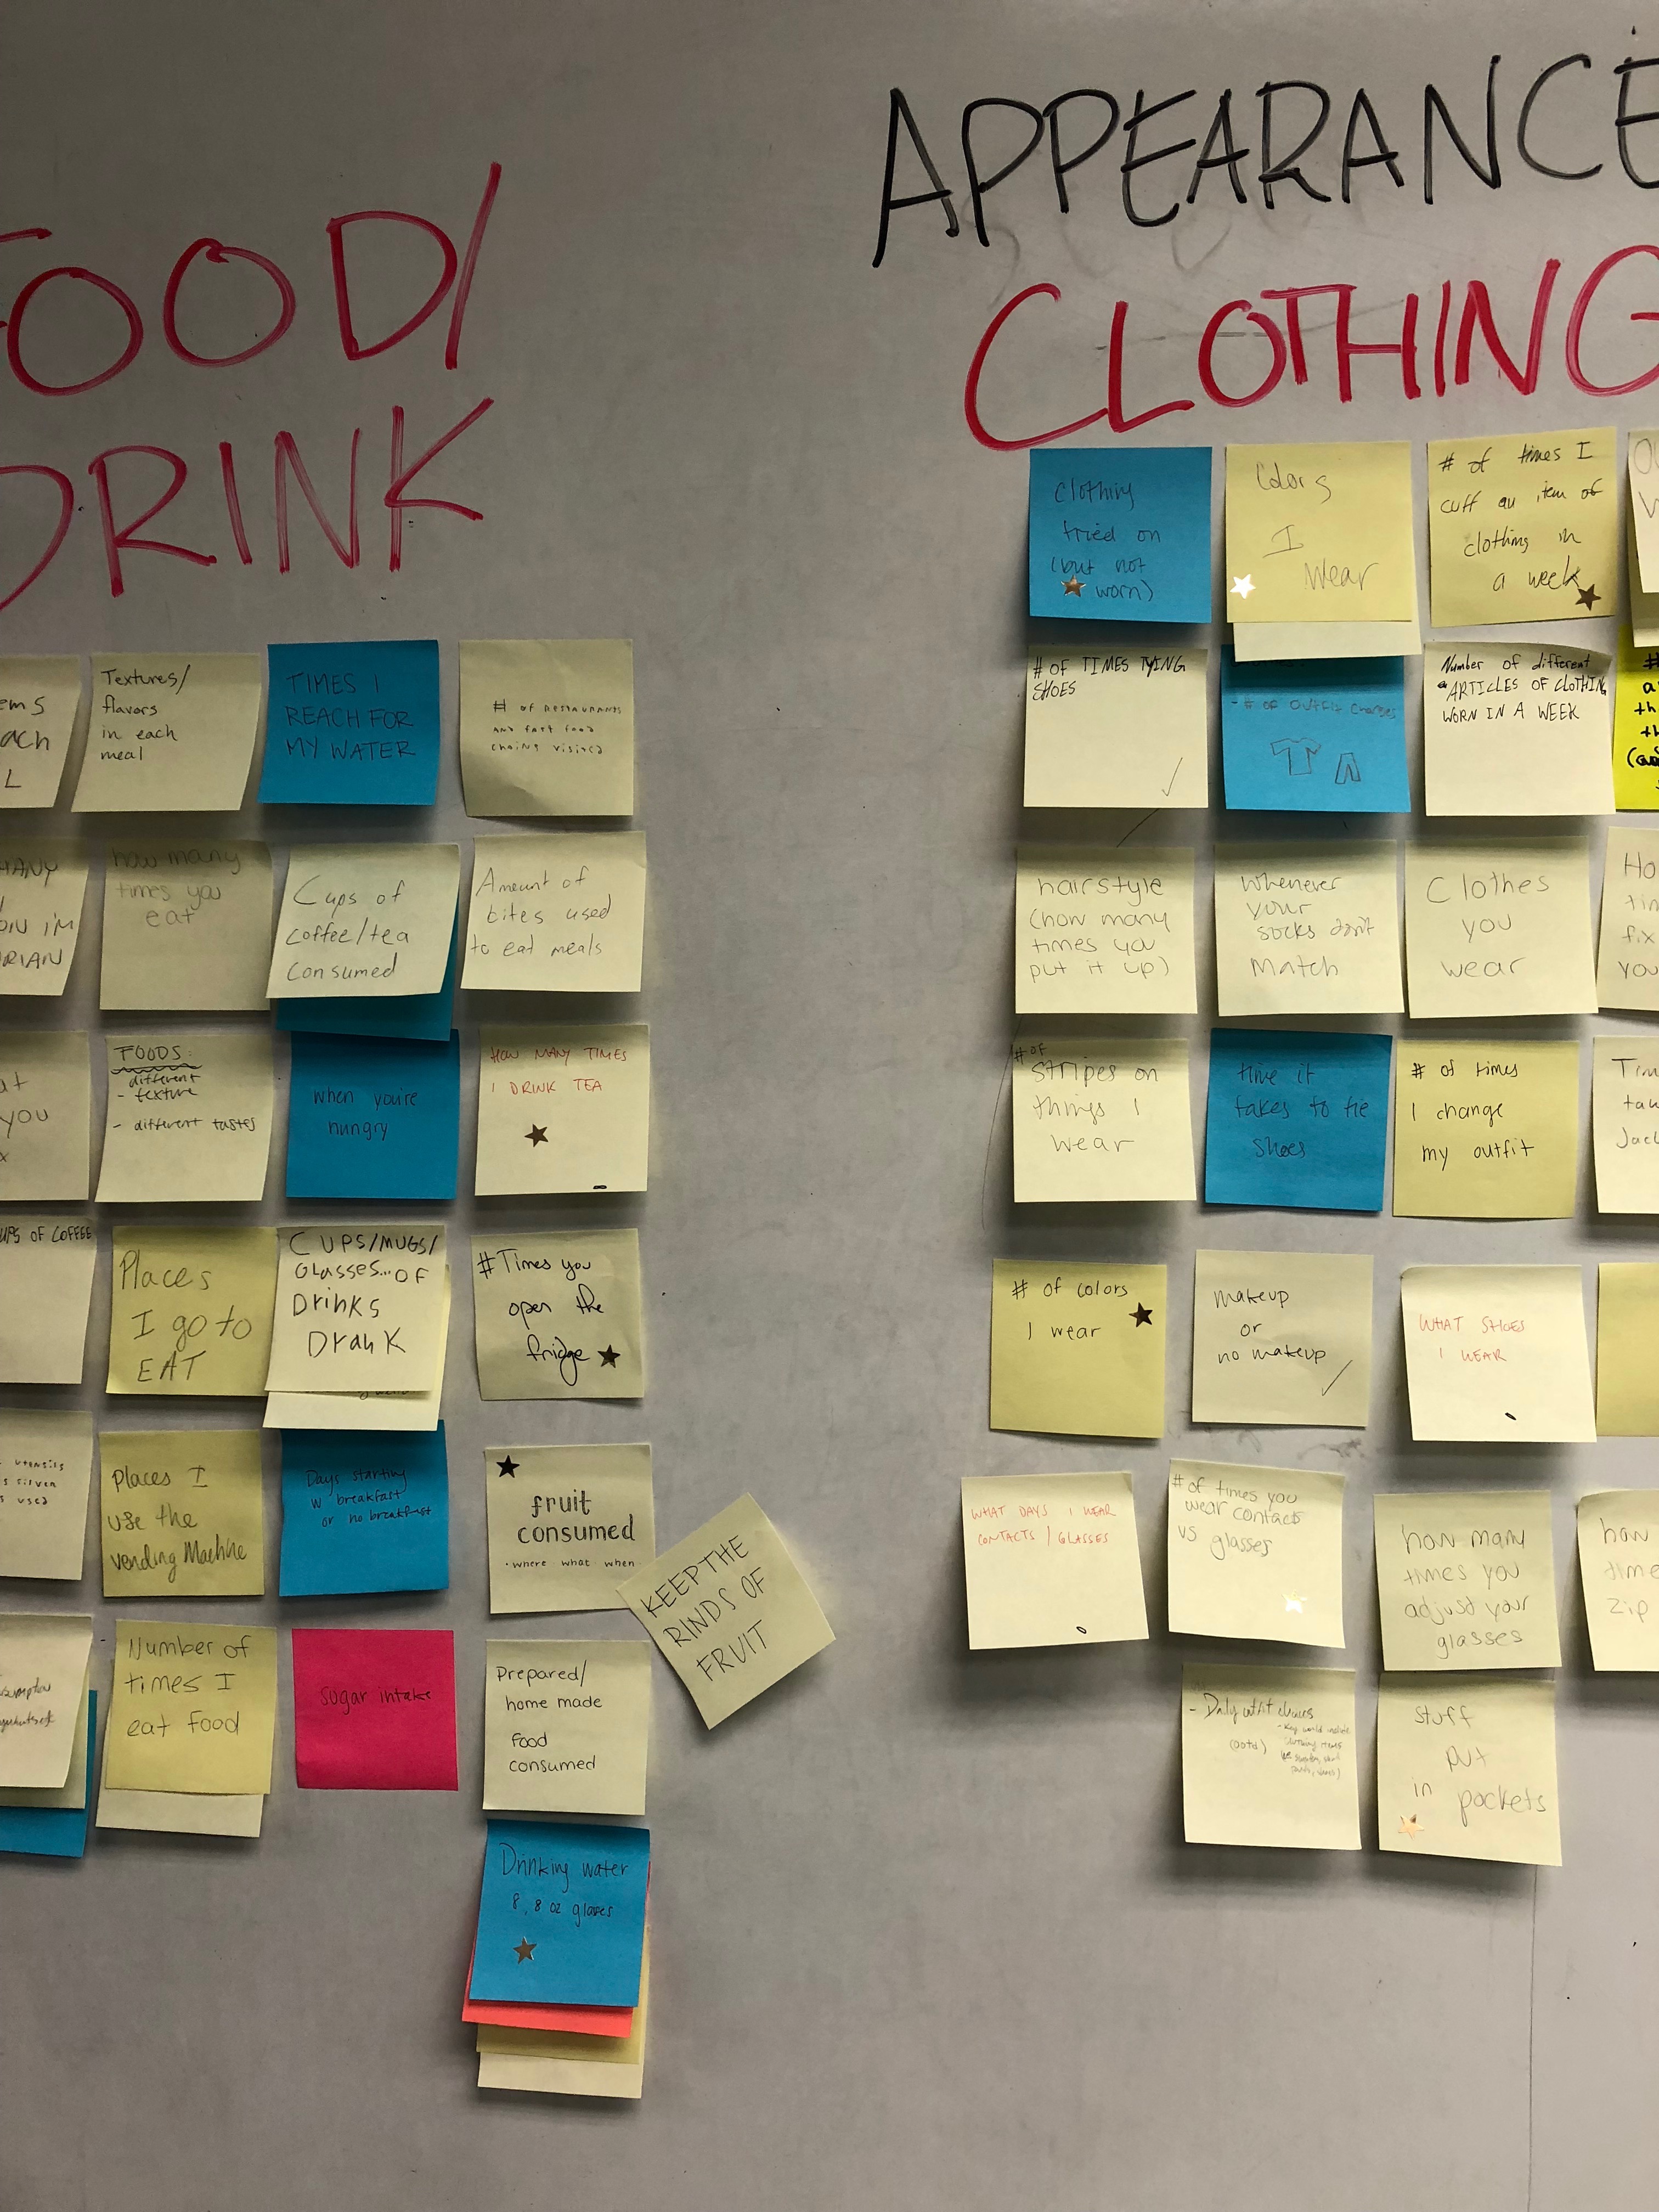 FOOD/
DRINK
ems
ach
L
Textures/
flavors
in each
meal
TIMES I
REACH FOR
MY WATER
# OF RESTAURANTS
AND FAST FOOD
CHAINS VISITED
MANY
I'M
RIAN
how many
times you
eat
Cups of
coffee/tea
consumed
Amount of
bites used
to eat meals
at
you
x
FOODS:
different
- texture
- different tastes
when you're
hungry
HOW MANY TIMES
I DRINK TEA
UPS OF COFFEE
Places
I go to
EAT
CUPS/MUGS/
Glasses...OF
Drinks
Drank
# Times you
open the
fridge
utensils
silver
used
Places I
use the
vending Machine
Days starting
w breakfast
or no breakfast
fruit
consumed
• where • what • when
KEEP THE
RINDS OF
FRUIT
sumption
Number of
times I
eat food
Sugar intake
Prepared/
home made
food
consumed
Drinking water
8, 8 oz glasses
APPEARANCE
CLOTHING
Clothing
tried on
(but not
worn)
Colors
I
Wear
# of times I
cuff an item of
clothing in
a week
# OF TIMES TYING
SHOES
- # OF OUTFIT changes
Number of different
ARTICLES OF CLOTHING
WORN IN A WEEK
#
a
th
hairstyle
(how many
times you
put it up)
Whenever
your
socks don't
Match
Clothes
you
wear
Ho
tim
fix
you
# of
Stripes on
things I
wear
time it
takes to tie
shoes
# of times
I change
my outfit
Tim
tak
Jac
# of colors
I wear
makeup
or
no makeup
WHAT SHOES
I WEAR
WHAT DAYS I WEAR
CONTACTS / GLASSES
# of times you
wear contacts
vs glasses
how many
times you
adjust your
glasses
how
time
zip
- Daily outfit choices
(ootd)
Stuff
put
in pockets